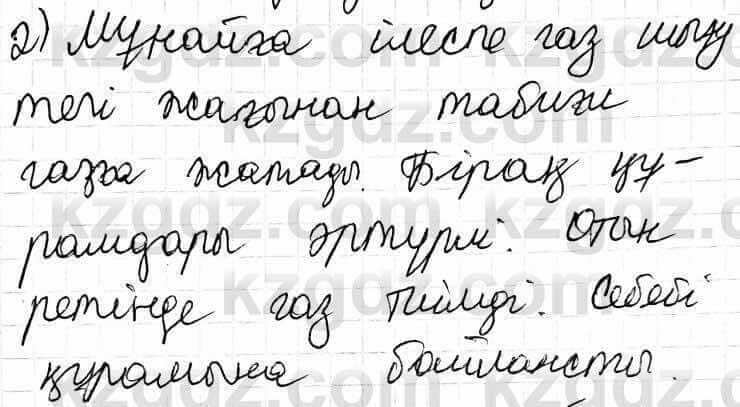 2) Мұнайға ілеспе газ шығу
тегі жағынан табиғи
газға жатады. Бірақ құ-
рамдары әртүрлі. Отын
ретінде газ тиімді. Себебі
құрамына байланысты.